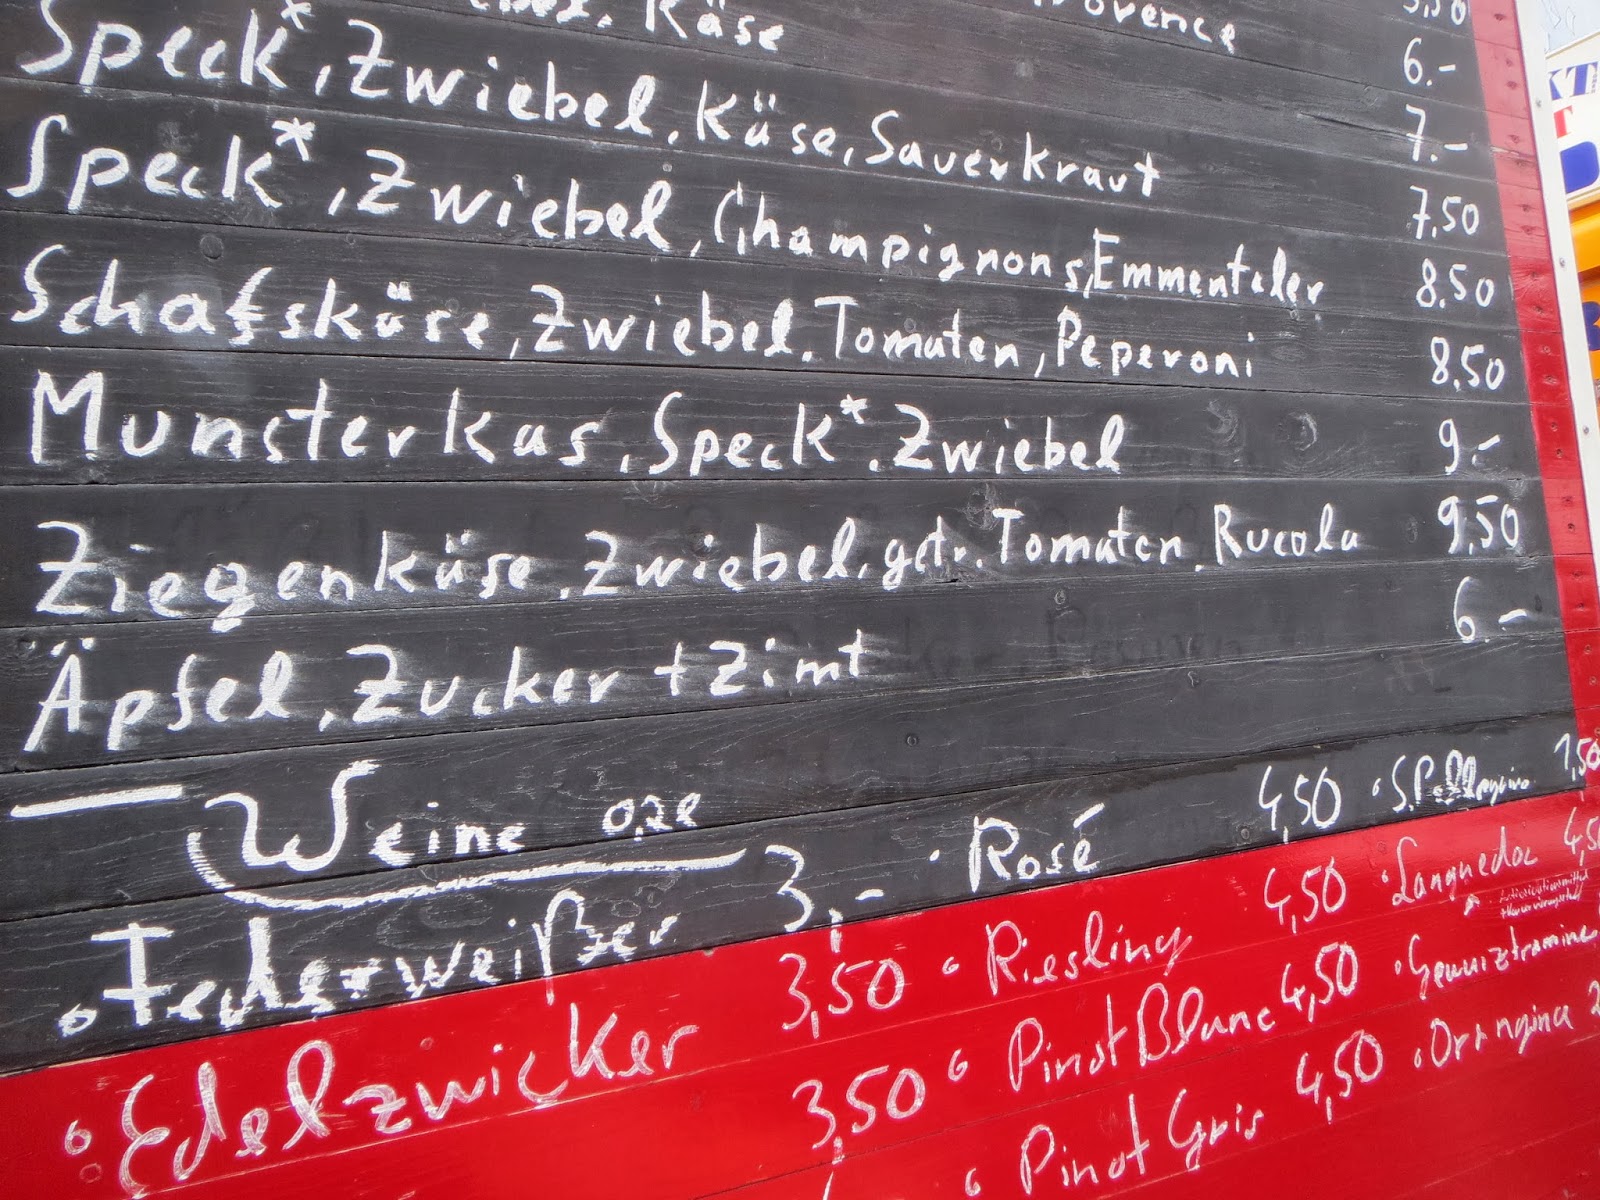 5,50
Provence 6.-
Käse 7.-
Speck*, Zwiebel, Käse, Sauerkraut 7,50
Speck*, Zwiebel, Champignons, Emmentaler 8.50
Schafskäse, Zwiebel, Tomaten, Peperoni 8.50
Munsterkas, Speck*, Zwiebel 9.-
Ziegenkäse, Zwiebel, getr. Tomaten, Rucola 9,50
Äpfel, Zucker + Zimt 6.-
Weine 0,2l
Federweißer 3,-
Edelzwicker 3,50
3,50
Rosé 4,50
Riesling 4,50
Pinot Blanc 4,50
Pinot Gris 4,50
S. Pellegrino 1,50
Languedoc 4,50
Gewürztramine
Orangina 2